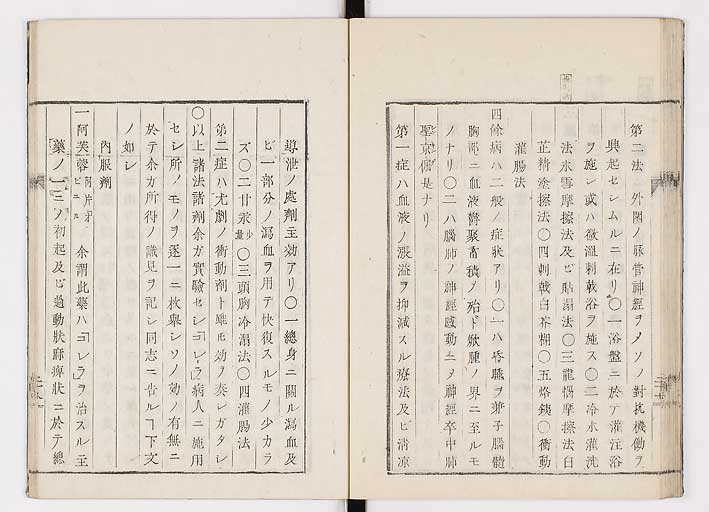 第二法 外圍ノ脉管神經ヲメソノ對抗機働ヲ
興起セシムルニ在リ〇一浴盤ニ於テ灌注浴
ヲ施シ或ハ微溫刺戟浴ヲ施ス〇二冷水灌洗
法氷雪摩擦法及ビ貼溻法〇三龍惱摩擦法白
芷精塗擦法〇四刺戟白芥糊〇五烙鐵〇衝動
灌腸法
四條病ハ二般ノ症狀アリ〇一ハ昏睡ヲ兼子腦髓
胸部ニ血液欝聚畜積ノ殆ド焮腫ノ界ニ至ルモ
ノナリ〇二ハ腦肺ノ神經感動セヌ神經卒中肺
聖京偏是ナリ
第一症ハ血液ノ漲溢ヲ抑減スル療法及ビ淸凉
導泄ノ處劑主効アリ〇一總身ニ關ル瀉血及
ビ一部分ノ瀉血ヲ用テ快復スルモノ少カラ
ズ〇二甘汞少量〇三頭胸冷溻法〇四灌腸法
第二症ハ尤劇ノ衝動劑ト雖モ効ノ奏シガタシ
〇以上諸法諸劑余ガ實驗セシ「コレラ」病人ニ施用
セシ所ノモノヲ逐一ニ枚擧シソノ効ノ有無ニ
於テ余ガ所得ノ識見ヲ記シ同志ニ告ルヿ下文
ノ如シ
內服劑
一阿芙蓉 阿片牙ビユル 余謂此藥ハ「コレラ」ヲ治スル主
藥ノ一ニソ初起及ビ過動狀麻痺狀ニ於テ總